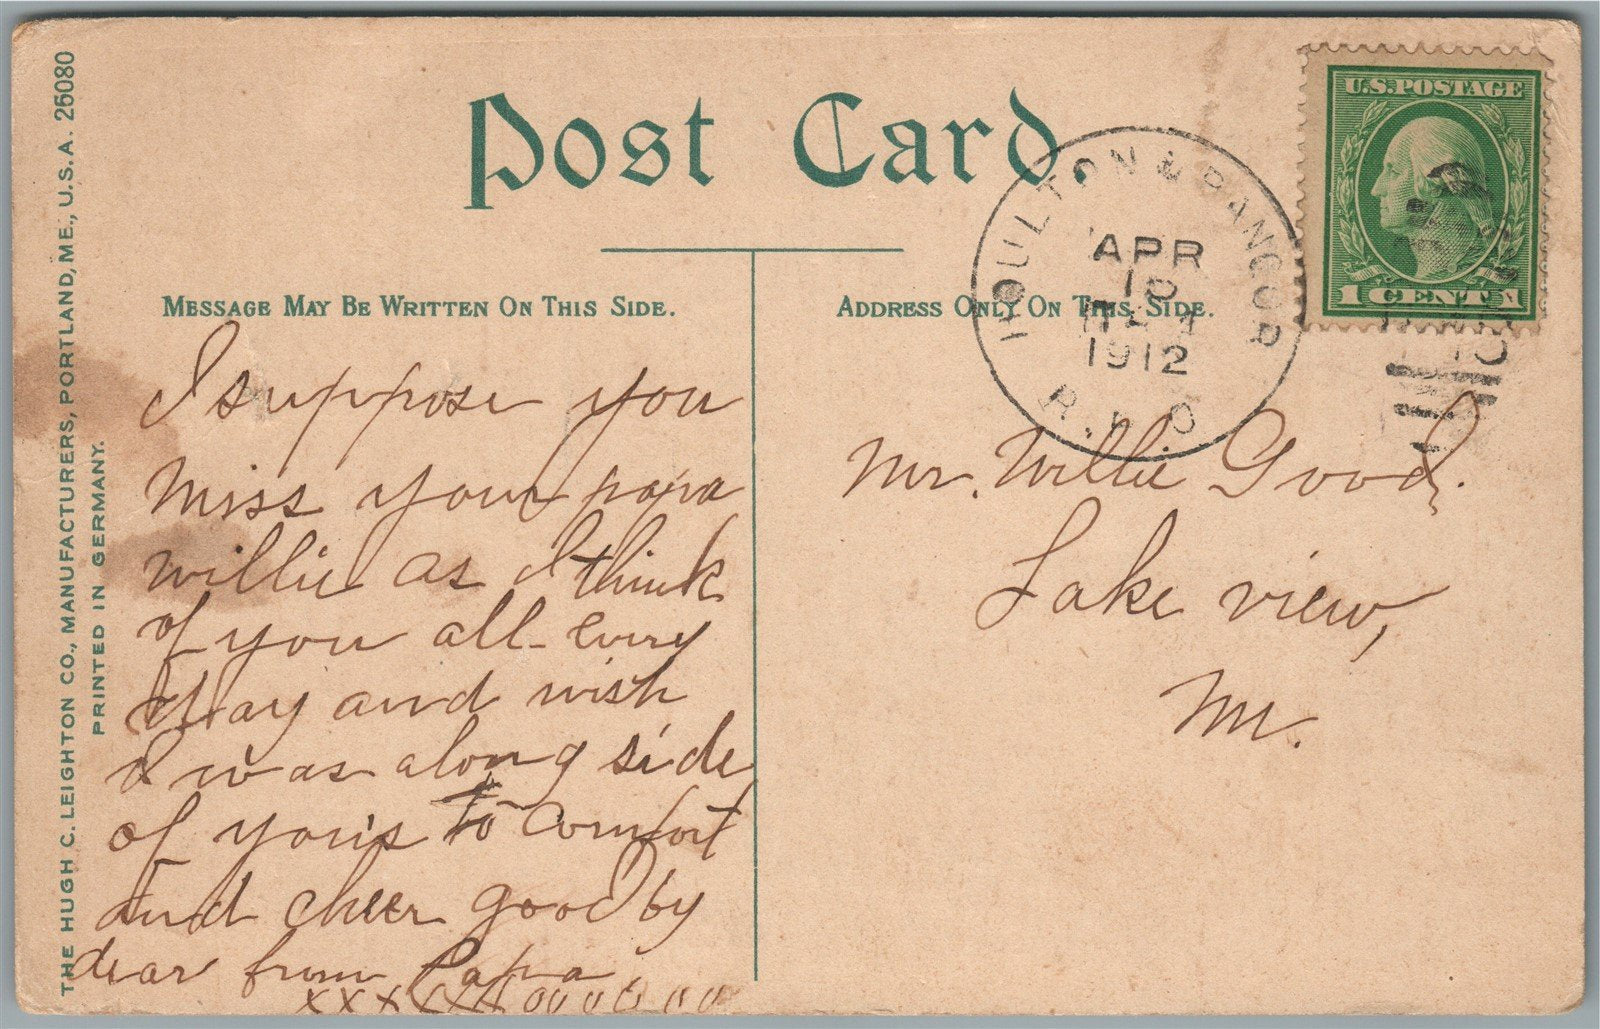 THE HUGH C. LEIGHTON CO., MANUFACTURERS, PORTLAND, ME., U.S.A. 26080
PRINTED IN GERMANY.
Post Card
MESSAGE MAY BE WRITTEN ON THIS SIDE.
ADDRESS ONLY ON THIS SIDE.
U.S. POSTAGE
1 CENT 1
HOULTON & BANGOR
APR
10
1912
R.P.O
I suppose you
miss your papa
willie as I think
of you all every
day and wish
I was along side
of yours to comfort
and cheer good by
dear from Papa
Mr. Willie Good.
Lake view,
Me.